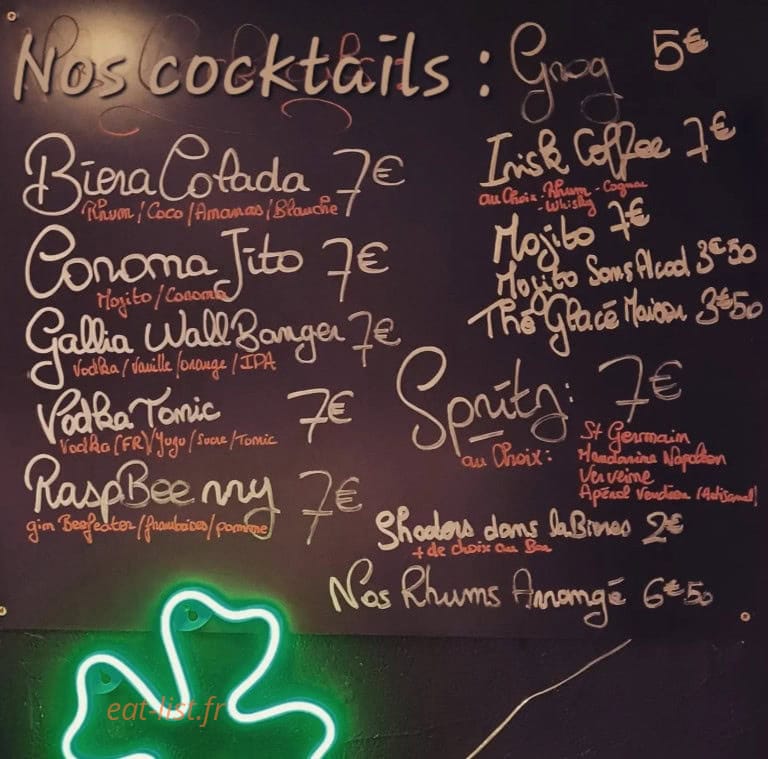 Nos cocktails :
Biera Colada 7€
Rhum / Coco / Ananas / Blanche
Corona Jito 7€
Mojito / Corona
Gallia Wall Banger 7€
Vodka / Vanille / orange / IPA
Vodka Tonic 7€
Vodka (FR) / Yuzu / Sucre / Tonic
RaspBeerry 7€
gin Beefeater / framboises / pomme
Grog 5€
Irish Coffee 7€
au Choix - Rhum - Cognac
- Whisky
Mojito 7€
Mojito Sans Alcool 3€50
Thé Glacé Maison 3€50
Spritz : 7€
au Choix :
St Germain
Mandarine Napoléon
Verveine
Apérol Vendéen (Artisanal)
Shooters dans la Bières 2€
+ de choix au Bar
Nos Rhums Arrangé 6€50
eat-list.fr